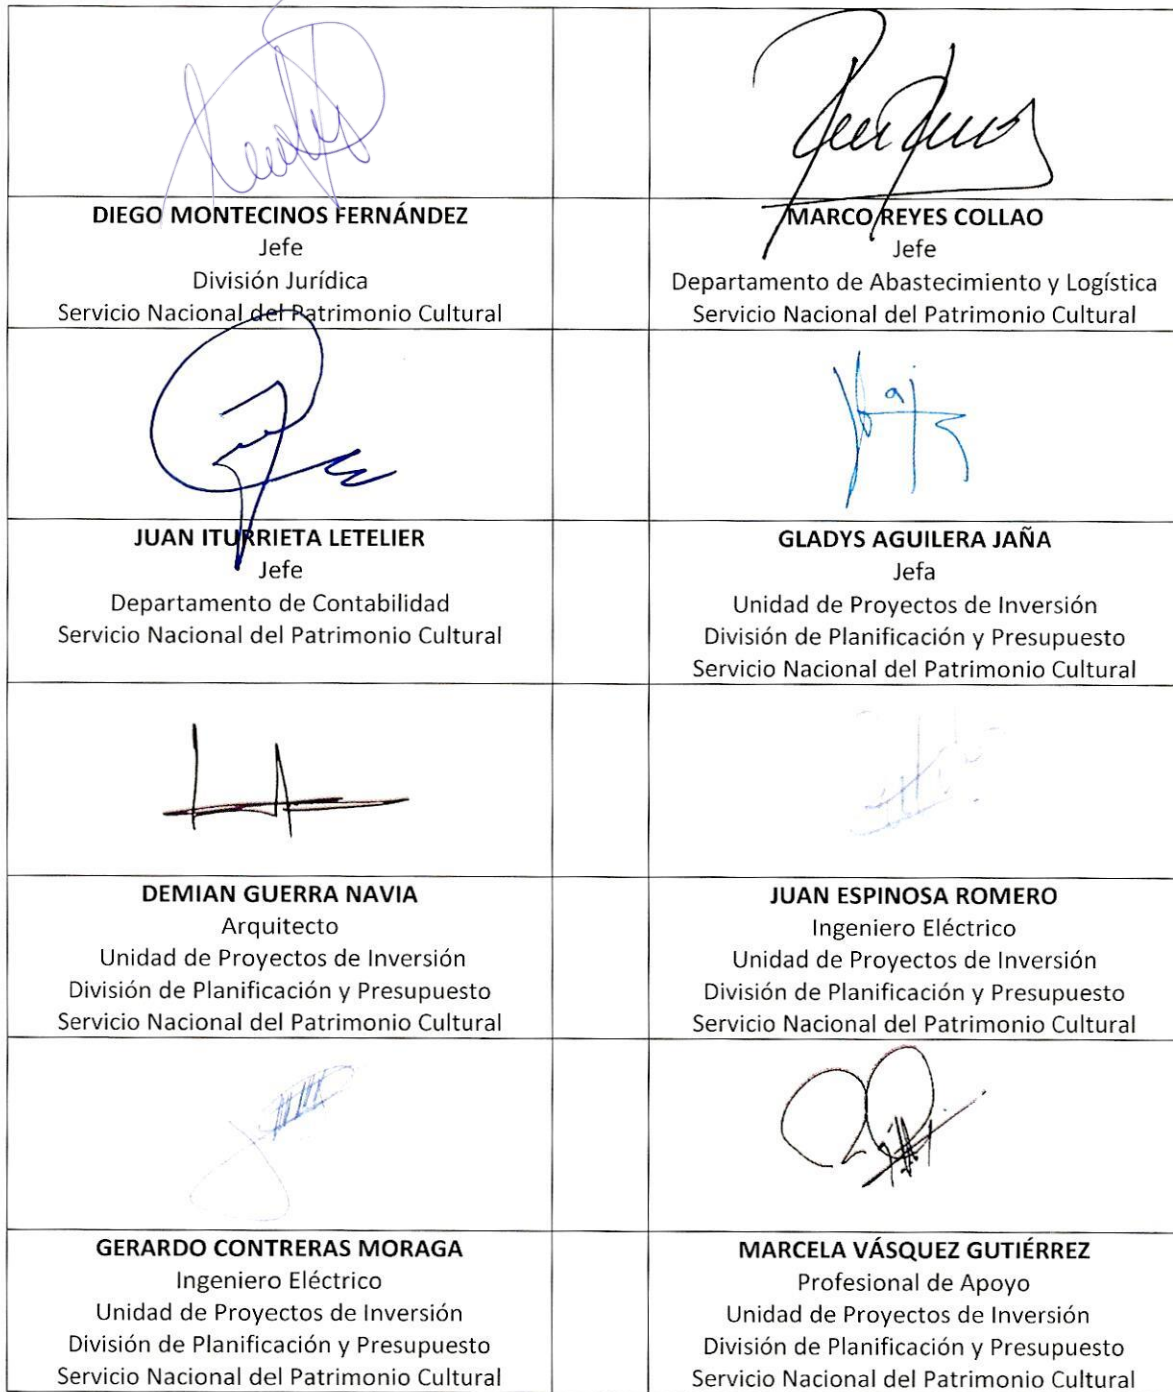 DIEGO MONTECINOS FERNÁNDEZ
Jefe
División Jurídica
Servicio Nacional del Patrimonio Cultural
MARCO REYES COLLAO
Jefe
Departamento de Abastecimiento y Logística
Servicio Nacional del Patrimonio Cultural
JUAN ITURRIETA LETELIER
Jefe
Departamento de Contabilidad
Servicio Nacional del Patrimonio Cultural
GLADYS AGUILERA JAÑA
Jefa
Unidad de Proyectos de Inversión
División de Planificación y Presupuesto
Servicio Nacional del Patrimonio Cultural
DEMIAN GUERRA NAVIA
Arquitecto
Unidad de Proyectos de Inversión
División de Planificación y Presupuesto
Servicio Nacional del Patrimonio Cultural
JUAN ESPINOSA ROMERO
Ingeniero Eléctrico
Unidad de Proyectos de Inversión
División de Planificación y Presupuesto
Servicio Nacional del Patrimonio Cultural
GERARDO CONTRERAS MORAGA
Ingeniero Eléctrico
Unidad de Proyectos de Inversión
División de Planificación y Presupuesto
Servicio Nacional del Patrimonio Cultural
MARCELA VÁSQUEZ GUTIÉRREZ
Profesional de Apoyo
Unidad de Proyectos de Inversión
División de Planificación y Presupuesto
Servicio Nacional del Patrimonio Cultural